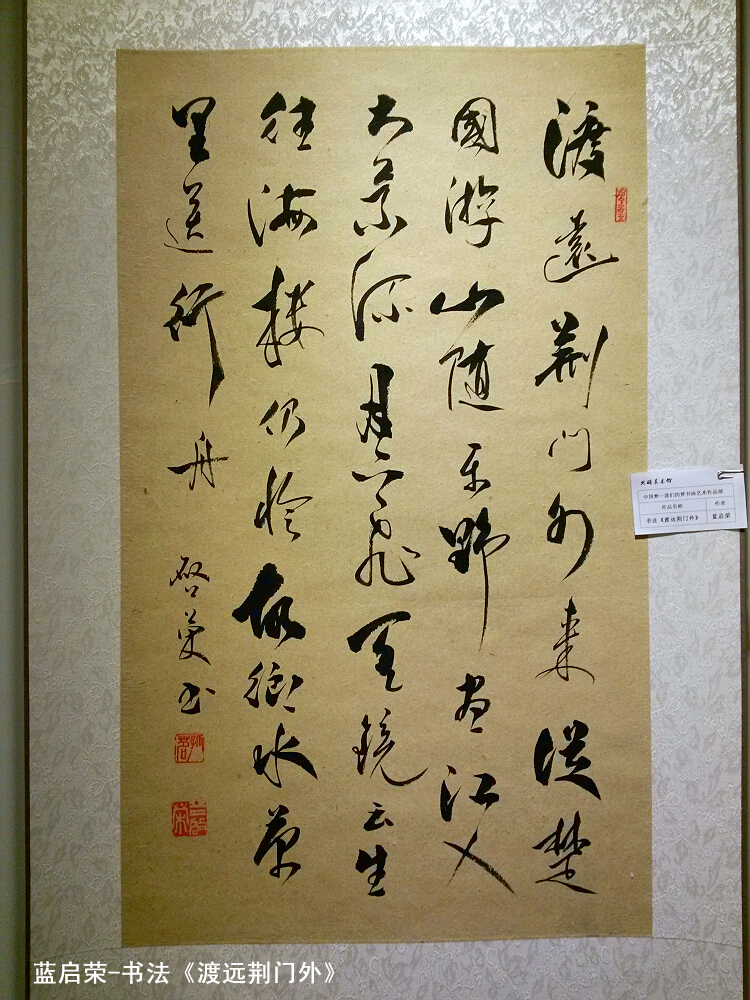 渡遠荆門外来從楚
國游山随平野盡江入
大荒流月下飛天鏡云生
往海楼仍怜故鄉水萬
里送行舟
啓荣书
美术馆
中国梦—我们的梦书画艺术作品展
作品名称 作者
书法《渡远荆门外》 蓝启荣
蓝启荣-书法《渡远荆门外》